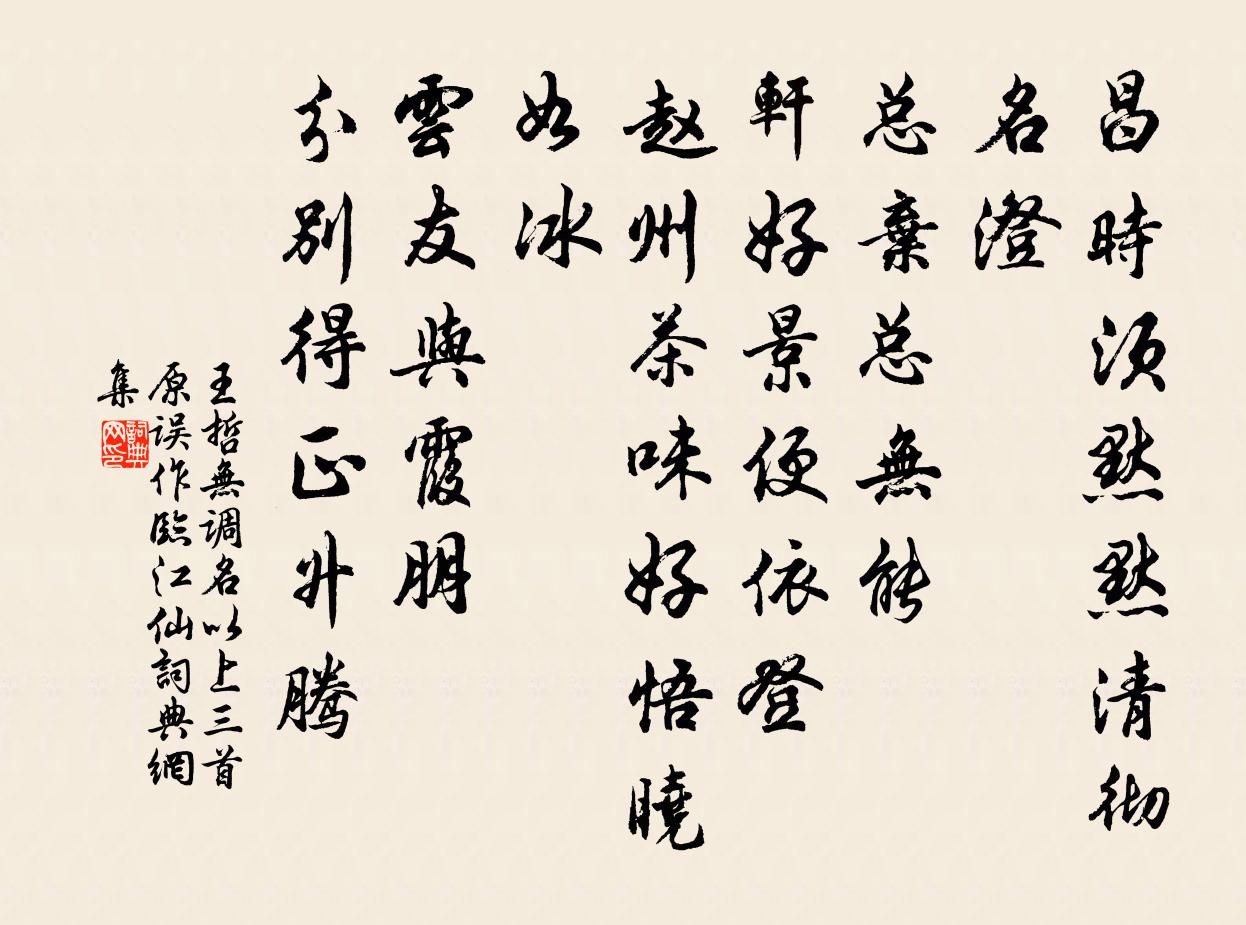 昌時須黙黙清彻
名澄
总棄总無能
軒好景便依登
赵州茶味好悟曉
如冰
雲友與霞朋
分别得正升騰
王哲無調名以上三首
原误作臨江仙詞典網
集
詞典网印